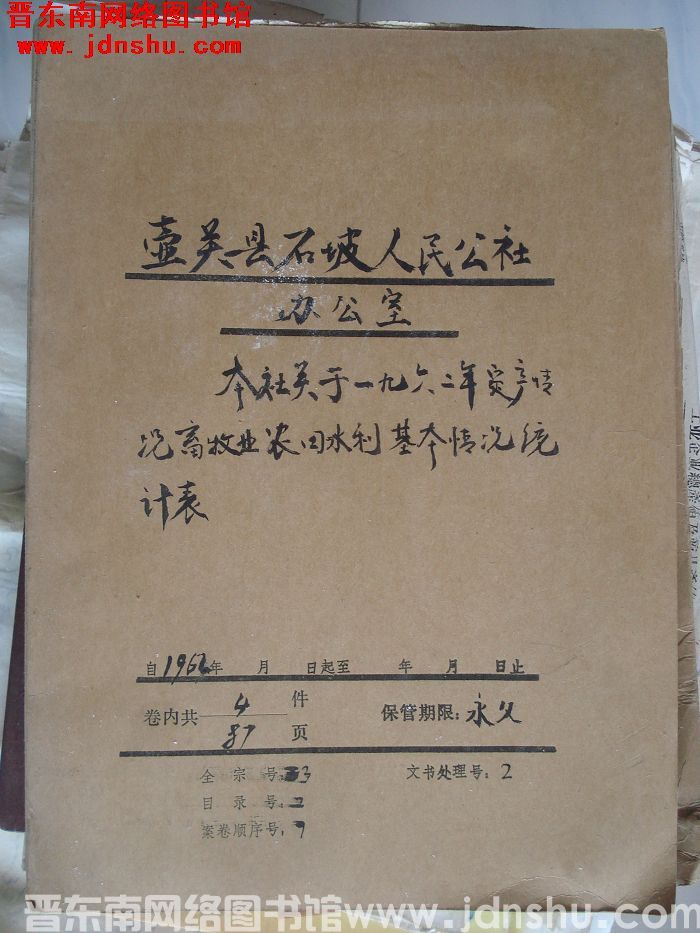 晋东南网络图书馆
www.jdnshu.com
壶关县石坡人民公社
办公室
本社关于一九六二年定产情
况畜牧业农田水利基本情况统
计表
自1962年 月 日起至 年 月 日止
卷内共 4 件
87 页
保管期限:永久
全宗号:3
文书处理号:2
目录号:2
案卷顺序号:9
晋东南网络图书馆 www.jdnshu.com